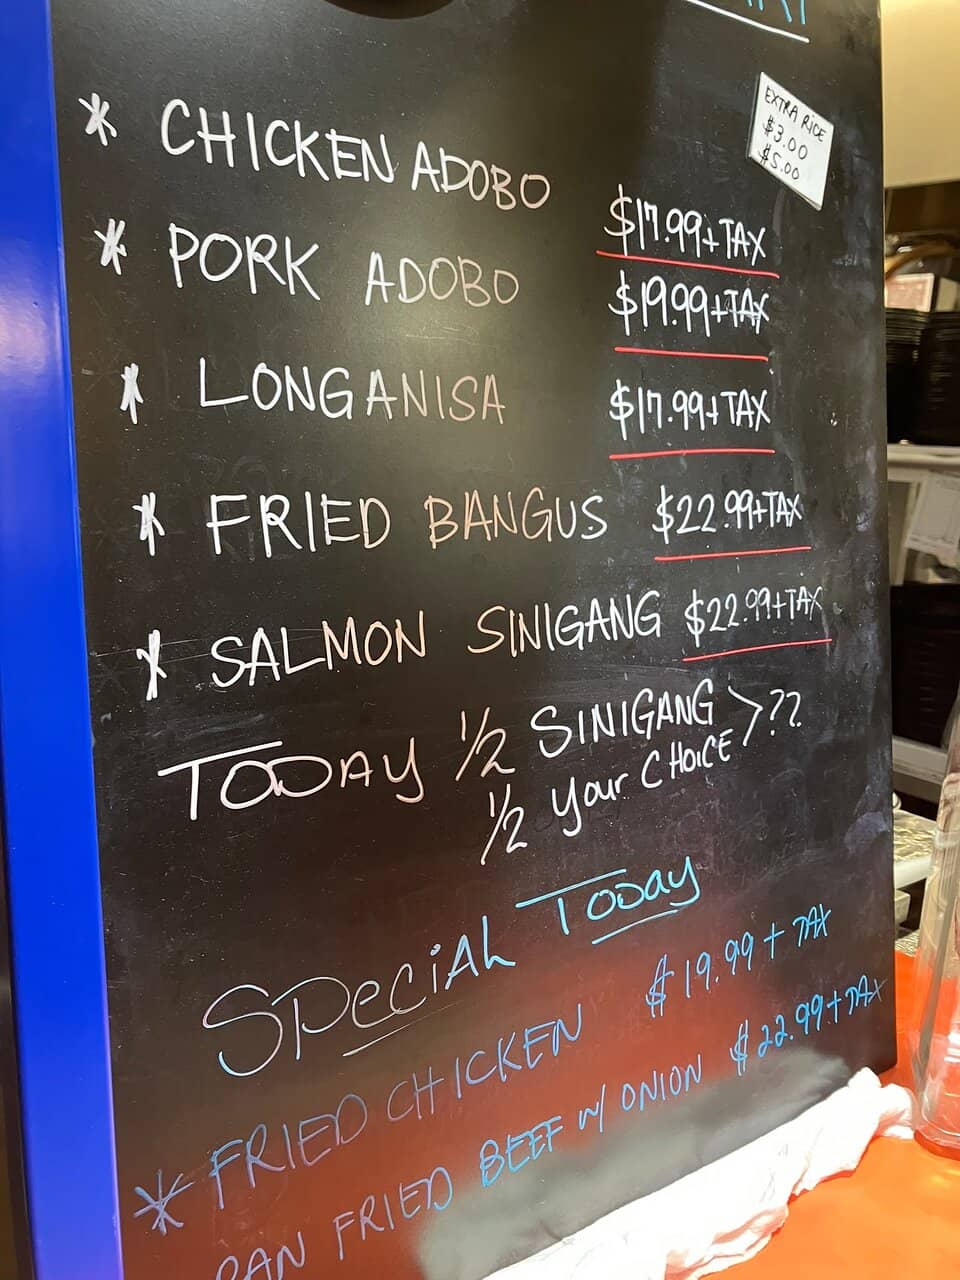 EXTRA RICE
$3.00
$5.00
* CHICKEN ADOBO $17.99+TAX
* PORK ADOBO $19.99+TAX
* LONGANISA $17.99+TAX
* FRIED BANGUS $22.99+TAX
* SALMON SINIGANG $22.99+TAX
TODAY 1/2 SINIGANG >??
1/2 your CHOICE
SPeCiAL TODAY
* FRIED CHICKEN $19.99+TAX
PAN FRIED BEEF w/ ONION $22.99+TAX